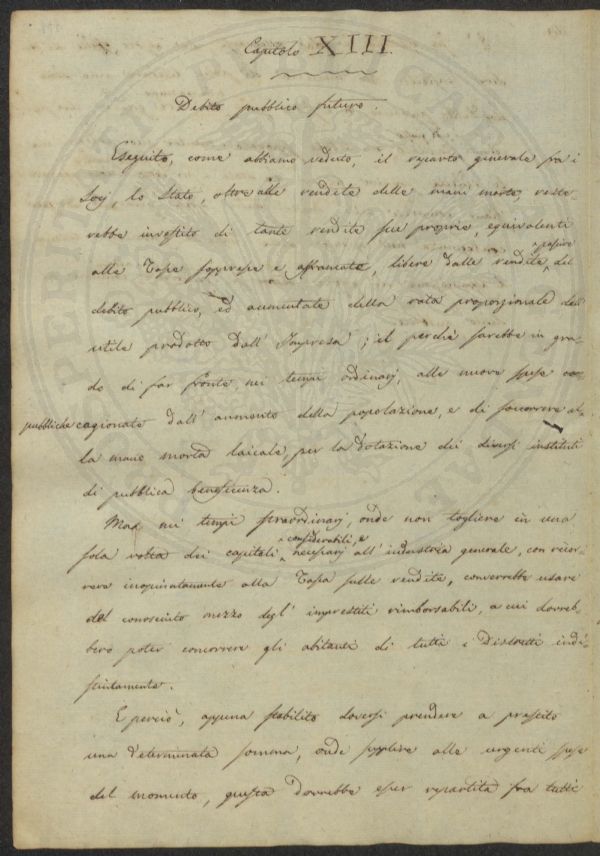 Capitolo XIII.
Debito pubblico futuro.
Eseguito, come abbiamo veduto, il reparto generale fra i
Socj, lo Stato, oltre alle rendite delle mani morte, reste-
rebbe investito di tante rendite sue proprie, equivalenti
alle Tasse soppresse e affrancate, libere dalle rendite passive del
debito pubblico, ed aumentate della rata proporzionale dell'
utile prodotto dall' Impresa; il perchè sarebbe in gra-
do di far fronte, nei tempi ordinarj, alle nuove spese
pubbliche cagionate dall' aumento della popolazione, e di soccorrere al-
la mano morta laicale, per la dotazione dei diversi instituti
di pubblica beneficenza.
Ma nei tempi straordinarj, onde non togliere in una
sola volta dei capitali considerabili, e necessarj all' industria generale, con ricor-
rere inopinatamente alla Tassa sulle rendite, converrebbe usare
del conosciuto mezzo degl' imprestiti rimborsabili, a cui dovreb-
bero poter concorrere gli abitanti di tutti i Distretti indi-
stintamente.
E perciò, appena stabilito doversi prendere a prestito
una determinata somma, onde supplire alle urgenti spese
del momento, questa dovrebbe esser repartita fra tutti